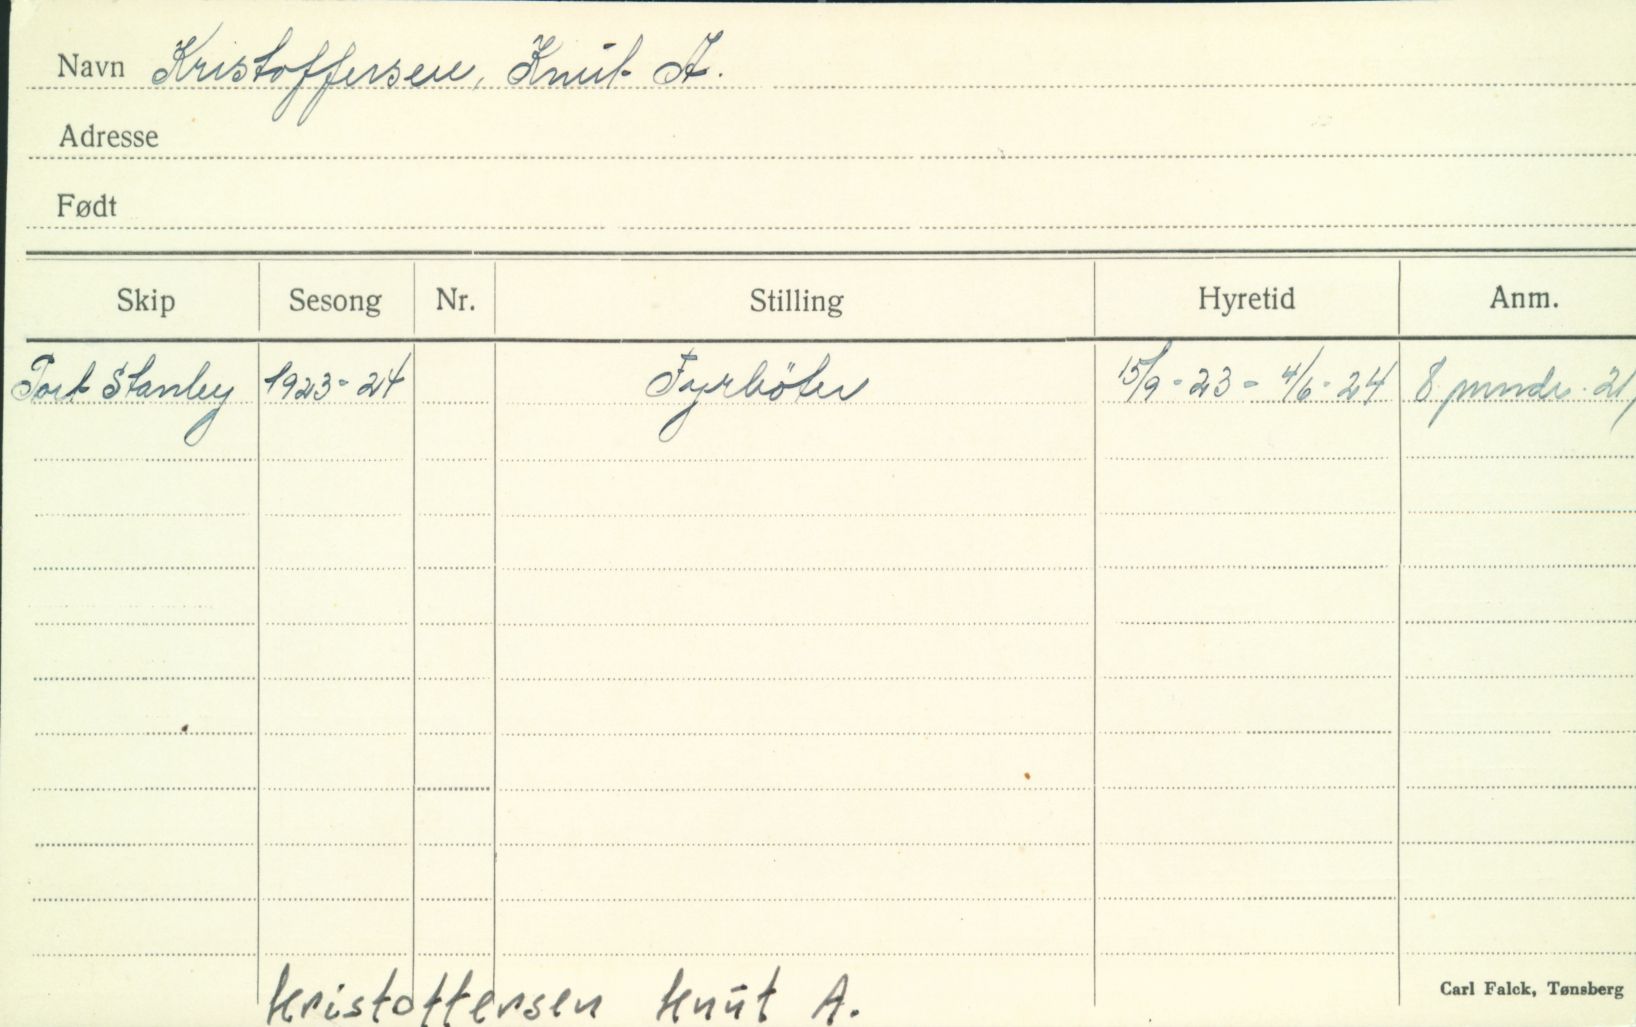 Navn Kristoffersen, Knut A.
Adresse
Født
Skip Sesong Nr. Stilling Hyretid Anm.
Port Stanley 1923-24 Fyrböter 15/9-23 - 4/6-24 8 mndr. 21
Kristoffersen Knut A.
Carl Falck, Tønsberg